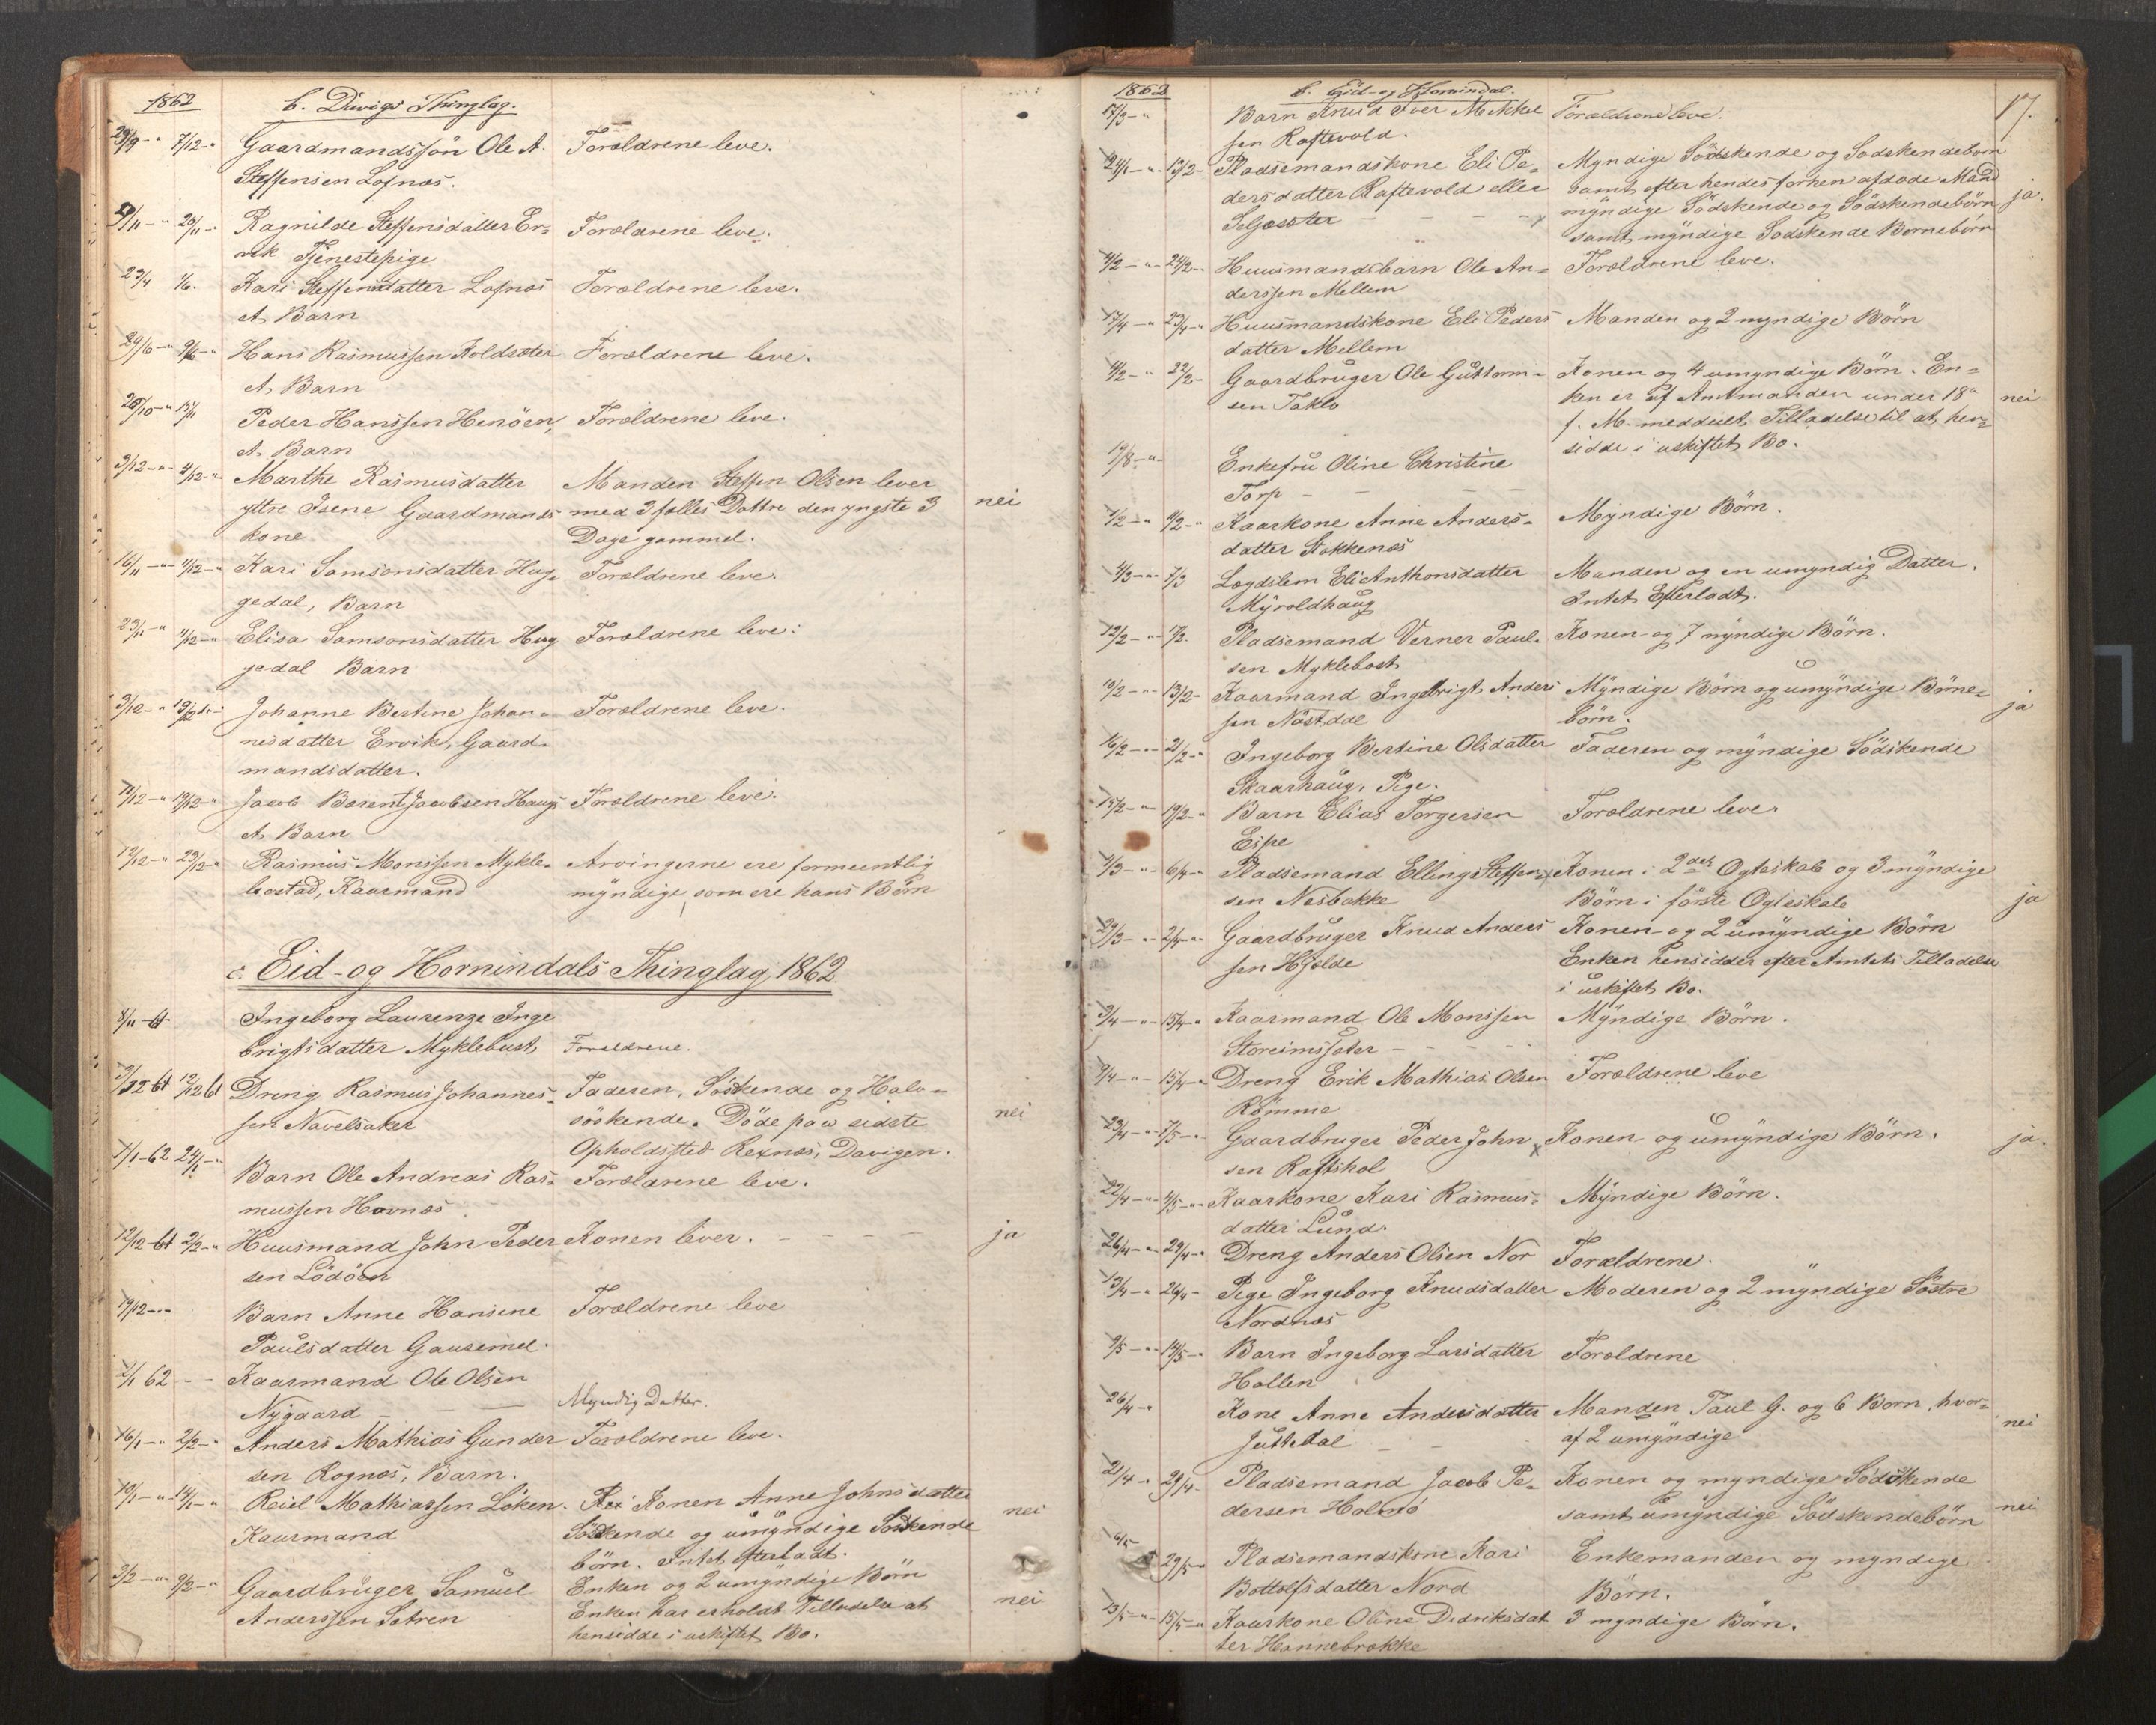 1862 b. Davigs Thinglag.
29/9 - " 7/12 - " Gaardmandssøn Ole A. Forældrene leve.
Steffensen Lofnæs.
9/11 - " 20/11 - Ragnilde Steffensdatter Er- Forældrene leve.
vik Tjenestepige
23/4 1/6. Kari Steffensdatter Lofnæs Forældrene leve.
et Barn
29/6 - " 9/6 - " Hans Rasmussen Koldsæter Forældrene leve.
et Barn
20/10 - " 15/11 Peder Hanssen Henöen, Forældrene leve.
et Barn
3/12 - " - 4/12 - " Marthe Rasmusdatter Manden Steffen Olsen lever
yttre Isene Gaardmands med 3 fælles Dottre den yngste 3 nei
kone Dage gammel.
16/11 - " - 4/12 - " Kari Samsonsdatter Hug- Forældrene leve.
gedal, Barn
23/11 - " 4/12 - " Elisa Samsonsdatter Hug Forældrene leve.
gedal Barn
3/12 - " 19/12 - Johanne Bertine Johan- Forældrene leve.
nesdatter Ervik, Gaard-
mandsdatter.
11/12 - " 19/12 - " Jacob Berent Jacobsen Haugs Forældrene leve.
et Barn
12/12 - " 23/12 - " Rasmus Monssen Mykle- Arvingerne ere formeentlig
bostad, Kaarmand myndige, som ere hans Børn
c. Eid- og Hornindals Thinglag 1862.
8/11 - 61 Ingeborg Laurenze Inge
brigtsdatter Myklebust, Forældrene.
61 12/12 61 Dreng Rasmus Johannes- Faderen, Söskende og Halv-
sen Navelsaker söskende. Döde paa sidste nei
Opholdssted Rexnæs, Davigen.
7/1 - 62 24/1 - " Barn Ole Andreas Ras- Forældrene leve.
mussen Havnæs
12/12 - 61 2/2 - " Huusmand John Peder Konen lever. - - - - ja
sen Lödöen
19/12 - " - Barn Anne Hansine Forældrene leve
Paulsdatter Gausemel.
2/1 62 - - Kaarmand Ole Olsen
Nygaard - - Myndig Datter.
16/1 - " 2/2 - " Anders Mathias Gunder Forældrene leve.
sen Rognæs, Barn.
10/1 - " - 14/1 - " Reiel Mathiassen Löken. Konen Anne Johnsdatter
Kaarmand Söskende og umyndige Söskende nei
börn. Intet efterladt.
3/2 - " - 9/2 - " Gaardbruger Samuel Enken og 2 umyndige Börn
Anderssen Sætren Enken har erholdt Tilladelse at nei
hensidde i uskiftet Bo.
1862 b. Eid- og Hornindal. 17.
17/3 - " Barn Knud Iver Mikkel Forældrene leve.
sen Raftevold.
24/1 - " - 13/2 - Pladsemandskone Eli Pe- Myndige Södskende og Sodskendeborn
dersdatter Raftevold eller samt efter hendes forhen afdöde Mand
Seljesæter - - - - myndige Södskende og Södskendebörn ja.
samt myndige Sodskende Bornebörn
4/2 - " - 24/2 - Huusmandsbarn Ole An- Forældrene leve.
derssen Mellem
17/4 - " 23/4 - " Huusmandskone Eli Peders Manden og 2 myndige Börn
datter Mellem
4/2 - " 22/2 - Gaardbruger Ole Guttorm- Konen og 4 umyndige Börn. En-
sen Taklo ken er af Amtmanden under 18de nei
f. M. meddeelt Tilladelse til at hen-
19/8 - " - sidde i uskiftet Bo.
Enkefru Oline Christine
Torp - - - -
1/2 - " 9/2 - " Kaarkone Anne Anders- Myndige Börn.
datter Stokkenæs
4/3 - " - 7/3 Lægdslem Eli Anthonsdatter Manden og en umyndig Datter.
Myroldhaug Intet Efterladt.
12/2 - " - 17/2. Pladsemand Verner Paul- Konen og 7 myndige Börn.
sen Myklebost
10/2 - " - 13/2 - Kaarmand Ingebrigt Anders Myndige Börn og umyndige Börne- ja
sen Nöstdal börn.
16/2 - " - 21/2 - " Ingeborg Bertine Olsdatter Faderen og myndige Södskende
Skaarhaug, Pige.
15/2 - " - 19/2 - " Barn Elias Torgersen Forældrene leve.
Espe
4/3 - " - 6/4 - " Pladsemand Elling Steffen- Konen i 2det Ægteskab og 3 myndige
sen Nesbakke Börn i förste Ægteskab ja
29/3 - " - 2/4 - " - Gaardbruger Knud Anders Konen og 2 umyndige Börn
sen Hjelde Enken hensidder efter Amtets Tilladelse
i uskiftet Bo.
3/4 - " - 15/4 - " Kaarmand Ole Monssen Myndige Börn.
Storeimssæter - -
9/4 - " - 15/4 - " Dreng Erik Mathias Olsen Forældrene leve
Römme
23/4 - " - 7/5 - " - Gaardbruger Peder John Konen og umyndige Börn. ja.
sen Raftshol
22/4 - " - 4/5 - " - Kaarkone Kari Rasmus- Myndige Börn.
datter Lund.
26/4 - " - 29/4 - " Dreng Anders Olsen Nor Forældrene.
13/4 - " 26/4 - Pige Ingeborg Knudsdatter Moderen og 2 myndige Söstre
Nordnæs
9/5 - " - 14/5 - " Barn Ingeborg Larsdatter Forældrene
Hallen
26/4 - " Kone Anne Andersdatter Manden Paul G. og 6 Born, hvor-
- - af 2 umyndige nei
21/4 - " 29/4 - Pladsemand Jacob Pe- Konen og myndige Södskende
dersen Holmö samt umyndige Södskendebörn nei
6/5 29/5 - Pladsemandskone Kari Enkemanden og myndige
Bottolfsdatter Nord Börn.
13/5 - " - 15/5 - " Kaarkone Oline Dedriksdat 3 myndige Börn.
ter Hannebrække